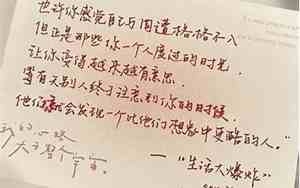 也许你感觉自己与周遭格格不入
但正是那些你一个人度过的时光
让你变得越来越有意思.
等有天别人终于注意到你的时候,
他们就会发现一个比他们想象中更酷的人."
—"生活大爆炸"
我的心眼
大于整个宇宙.